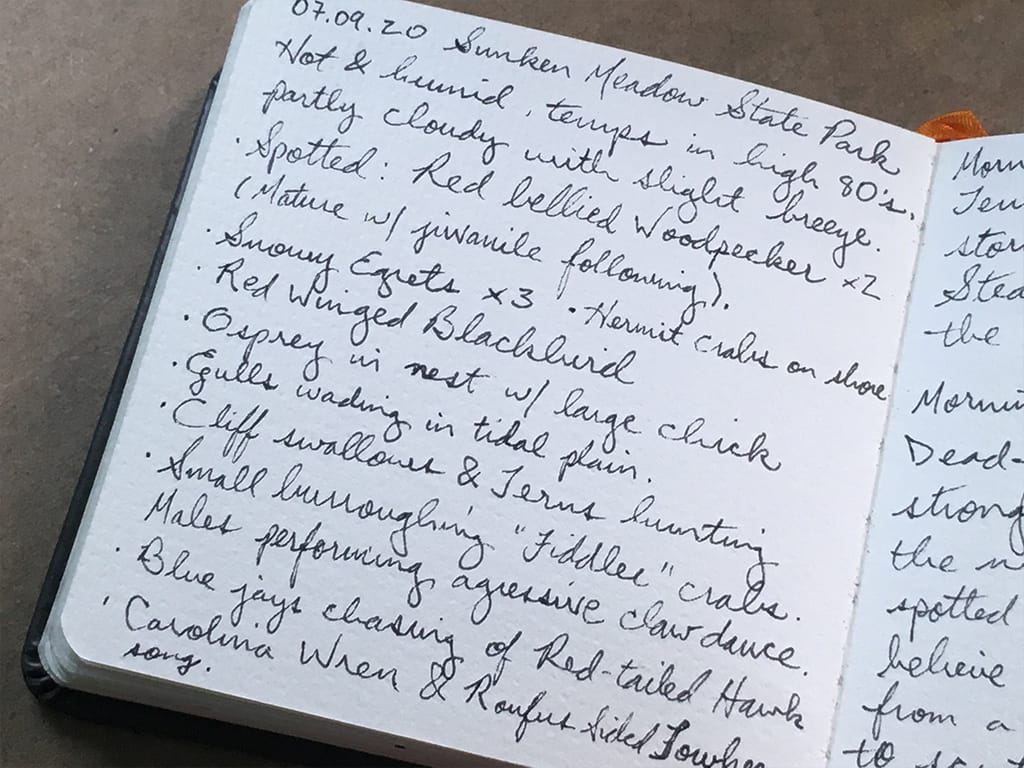 07.09.20 Sunken Meadow State Park
Hot & humid, temps in high 80's.
partly cloudy with slight breeze.
· Spotted: Red bellied Woodpecker x2
(Mature w/ juvanile following).
· Snowy Egrets x3 · Hermit crabs on shore
· Red Winged Blackbird
· Osprey in nest w/ large chick
· Egulls wading in tidal plain.
· Cliff swallows & Terns hunting
· Small burroughing "Fiddler" crabs.
Males performing agressive claw dance.
· Blue jays chasing of Red-tailed Hawk
· Carolina Wren & Roufus Sided Towhee
song.
Morn
Tem
stor
Stea
the
Mornin
Dead-
strong
the n
spotted
believe
from a
to